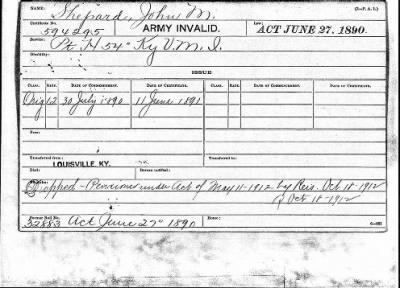 NAME: Shepard, John M. (3—P. A. I.)
Certificate No. 594295 ARMY INVALID. Law: ACT JUNE 27, 1890.
Service: Pt. H 54" Ky V. M. I.
Disability:
ISSUE
CLASS. RATE. DATE OF COMMENCEMENT. DATE OF CERTIFICATE. CLASS. RATE. DATE OF COMMENCEMENT. DATE OF CERTIFICATE.
Orig 12 30 July 1890 11 June 1891
From:
Transferred from
LOUISVILLE, KY.
Died: Bureau notified:
Dropped - Pensioned under Act of May 11-1912 by Reis. Oct 18-1912
Oct 18-1912
Former Roll No. Home:
32883 Act June 27" 1890